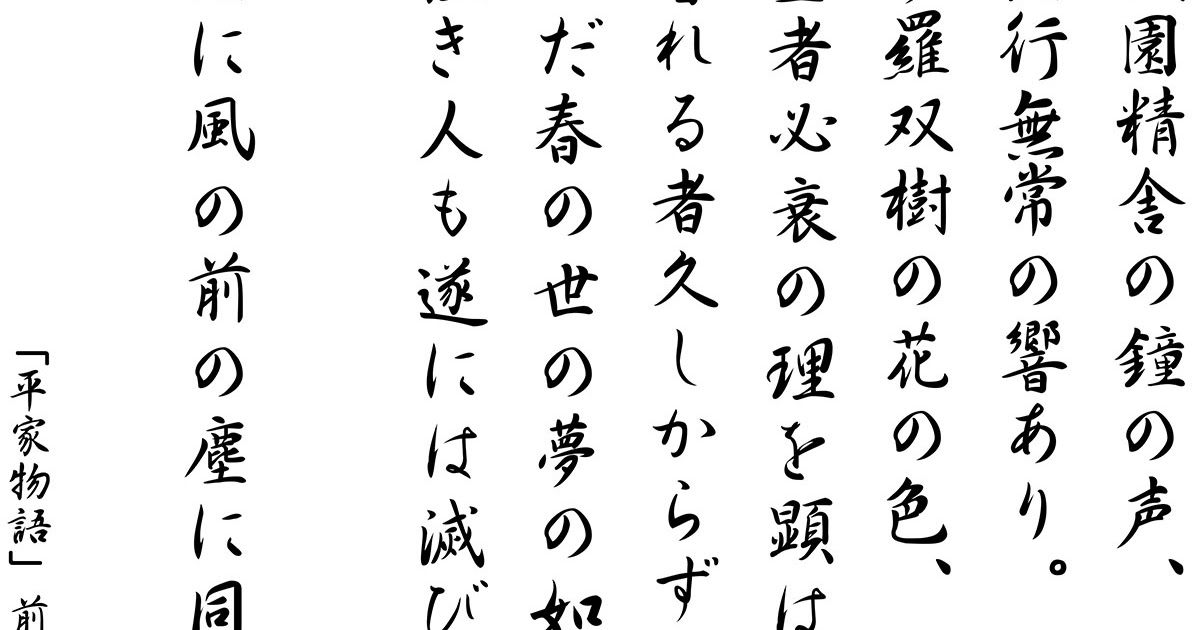 園精舎の鐘の声、
行無常の響あり。
羅双樹の花の色、
者必衰の理を顕は
れる者久しからず
だ春の世の夢の如
き人も遂には滅び
に風の前の塵に同
「平家物語」前